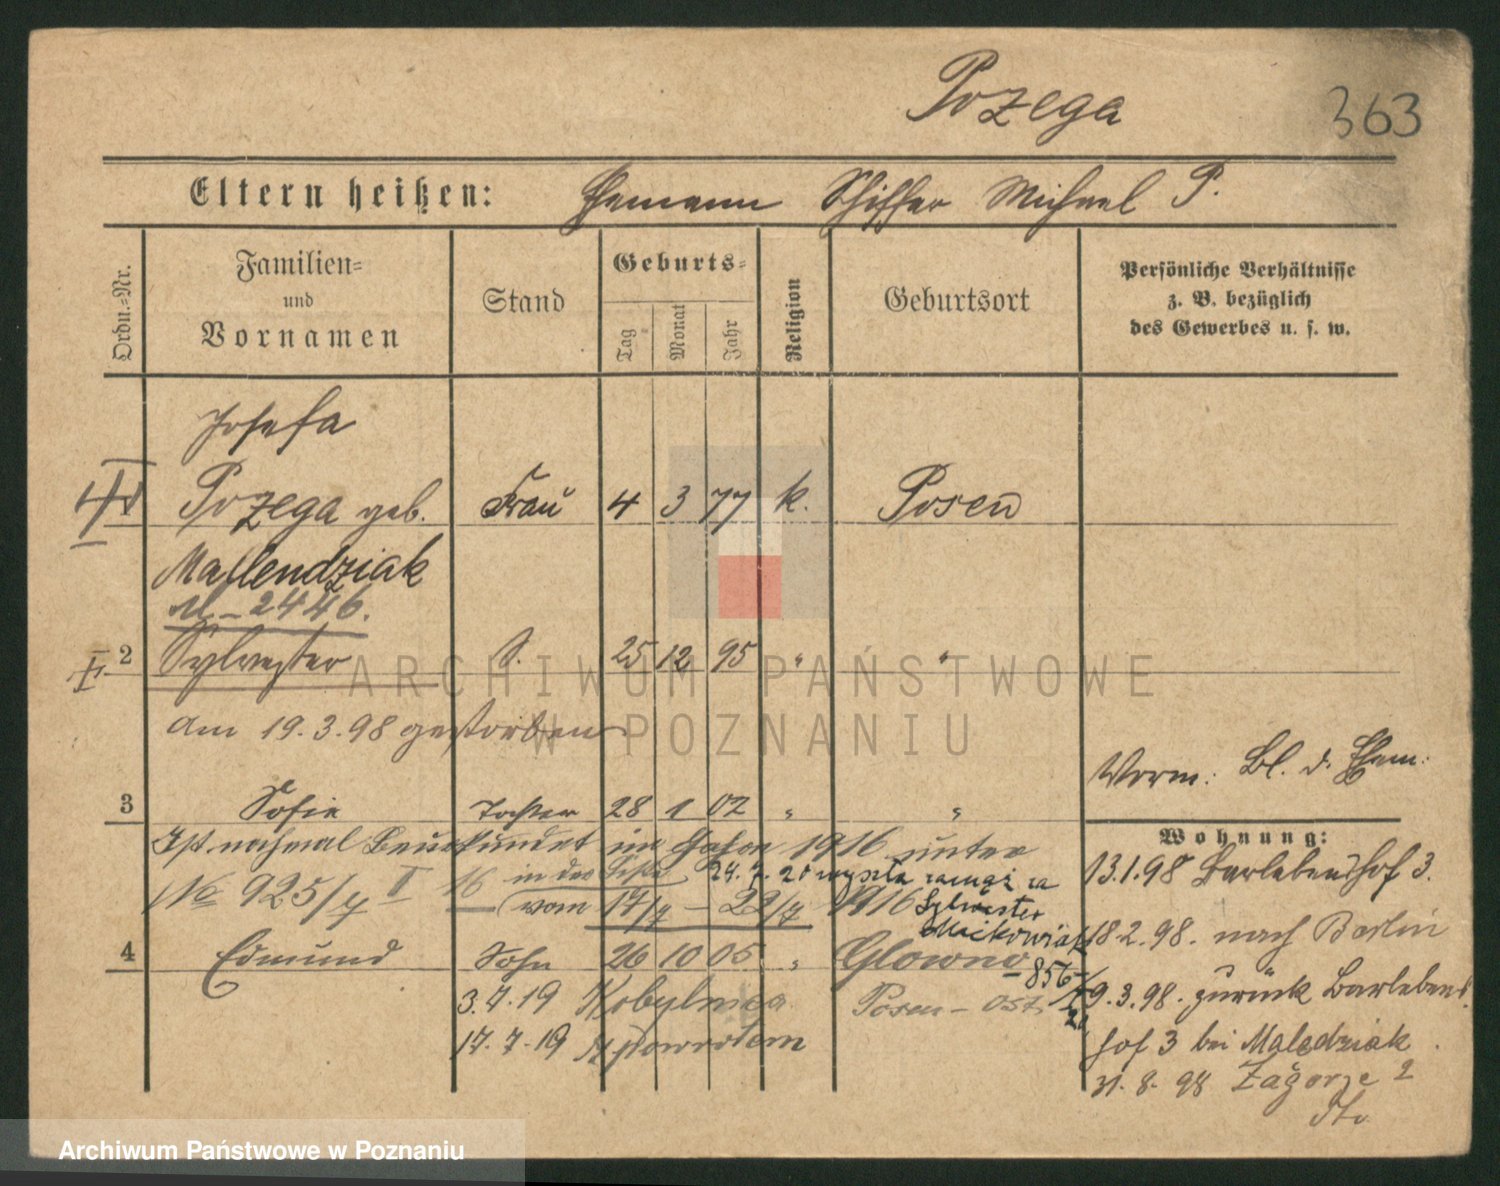 Pozega
363
Eltern heißen: Ehemann Schiffer Michael P.
Ordn.-Nr.
Familien-
und
Vornamen
Stand
Geburts-
Tag
Monat
Jahr
Religion
Geburtsort
Persönliche Verhältnisse
z. B. bezüglich
des Gewerbes u. s. w.
Josefa
Pozega geb. Frau 4 3 77 k. Posen
Mallendziak
M - 2446.
2 Sylvester S. 25 12 95 " "
Am 19.3.98 gestorben
Verm: Bl. d. Ehem:
3 Sofie Tochter 28 1 02 " "
Ist nochmal Beurkundet im Jahre 1916 unter
No 925/4 II 16 in der Liste
24. 7. 20 wyszła zamąż za
vom 17/7 - 22/7 1916 Sylwester
Maćkowiak
4 Edmund Sohn 26 10 05 " Glowno
-856-
3.7.19 Kobylnica Posen - Ost
17.7.19 z powrotem
Wohnung:
13.1.98 Barlebenshof 3.
18.2.98. nach Berlin
9.3.98. zurück Barlebens-
hof 3 bei Maledziak
31.8.98 Zagorze 2
ARCHIWUM PAŃSTWOWE
W POZNANIU
Archiwum Państwowe w Poznaniu